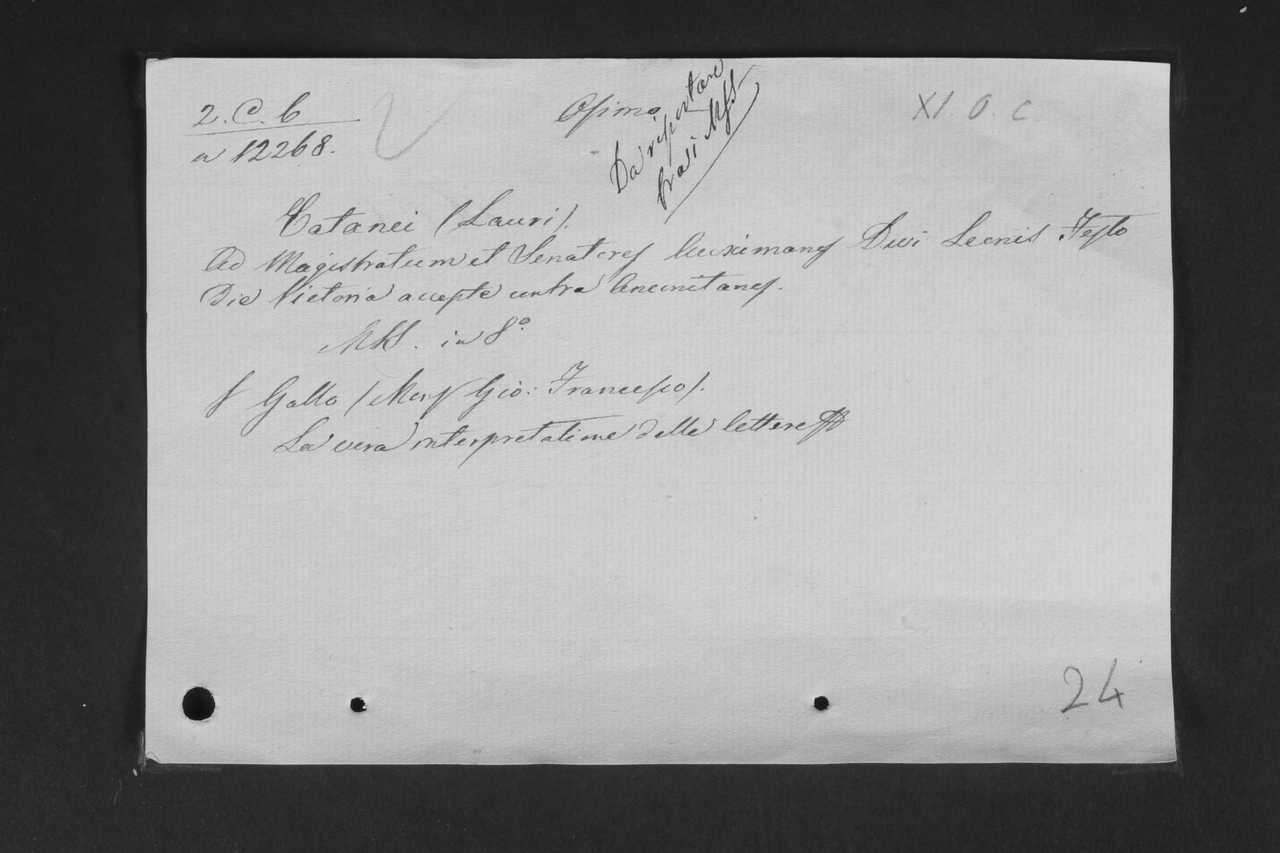 2. C. 6
a 12268.
Osimo
Da riportare
fra i Mss
XI. O. C
Catanei (Lauri).
Ad Magistratum et Senatores Auximanos Divi Leonis Festo
Die Victoria accepte contra Anconitanos.
MSS. in 8.º
Gallo (Mons Gio: Francesco).
La vera interpretatione delle lettere
24